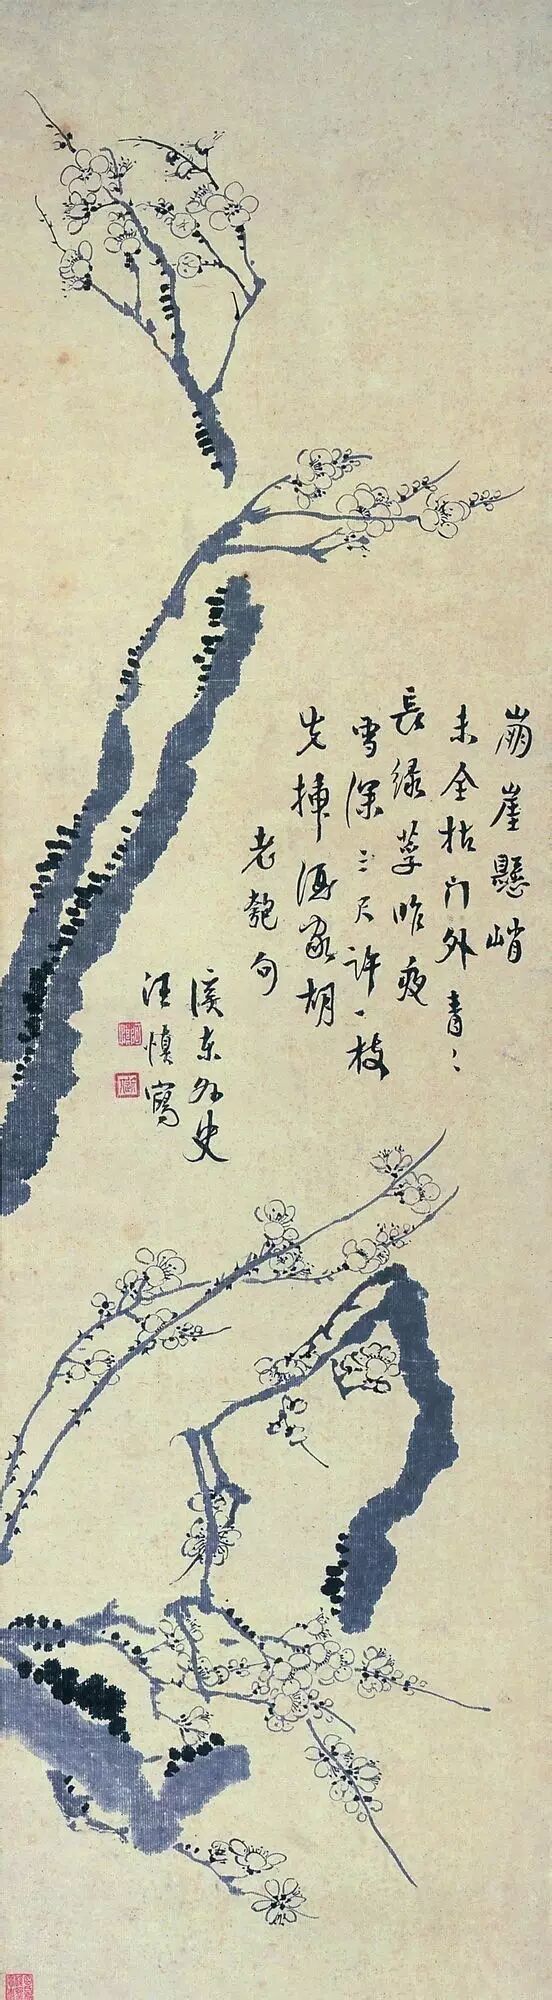 崩崖懸峭
未全枯门外青〻
長绿莩昨夜
雪深三尺許一枝
先插酒家胡
老匏句
溪东外史
汪慎寫